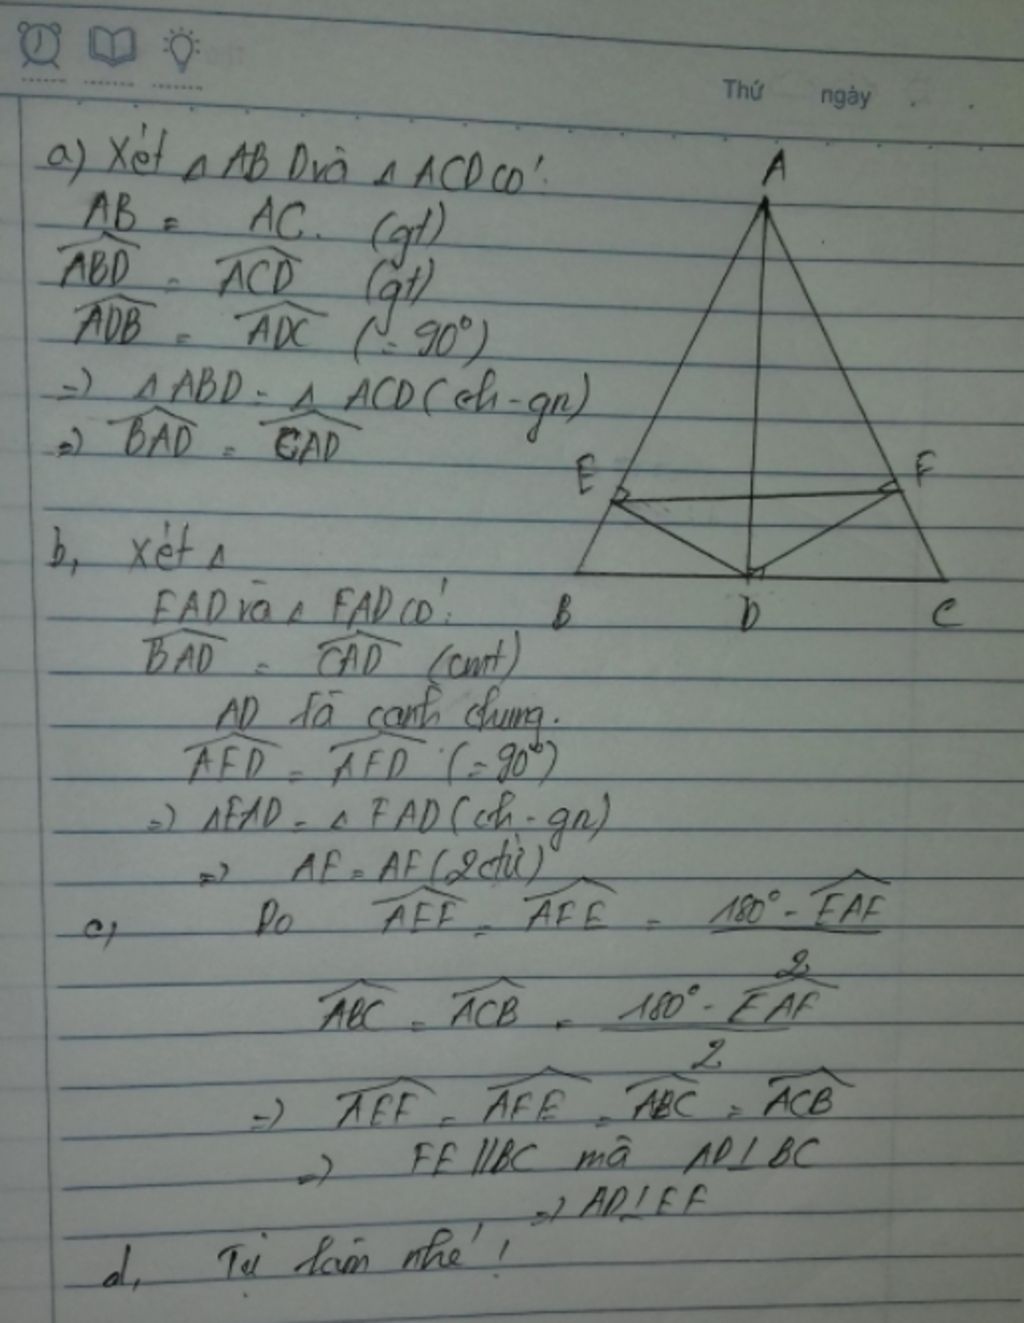 Thứ ngày
a) Xét △ ABD và △ ACD có:
AB = AC. (gt)
\widehat{ABD} = \widehat{ACD} (gt)
\widehat{ADB} = \widehat{ADC} (= 90°)
=) △ ABD = △ ACD (ch - gn)
=) \widehat{BAD} = \widehat{CAD}
A
E
F
B
D
C
b, Xét △
EAD và △ FAD có:
\widehat{BAD} = \widehat{CAD} (cmt)
AD là cạnh chung.
\widehat{AED} = \widehat{AFD} (= 90°)
=) △EAD = △ FAD (ch - gn)
=) AE = AF (2 ctư)
c, Do \widehat{AEF} = \widehat{AFE} = \frac{180° - \widehat{EAF}}{2}
\widehat{ABC} = \widehat{ACB} = \frac{180° - \widehat{EAF}}{2}
=) \widehat{AEF} = \widehat{AFE} = \widehat{ABC} = \widehat{ACB}
=) EF // BC mà AD ⊥ BC
=) AD ⊥ EF
d, Tự làm nhé !